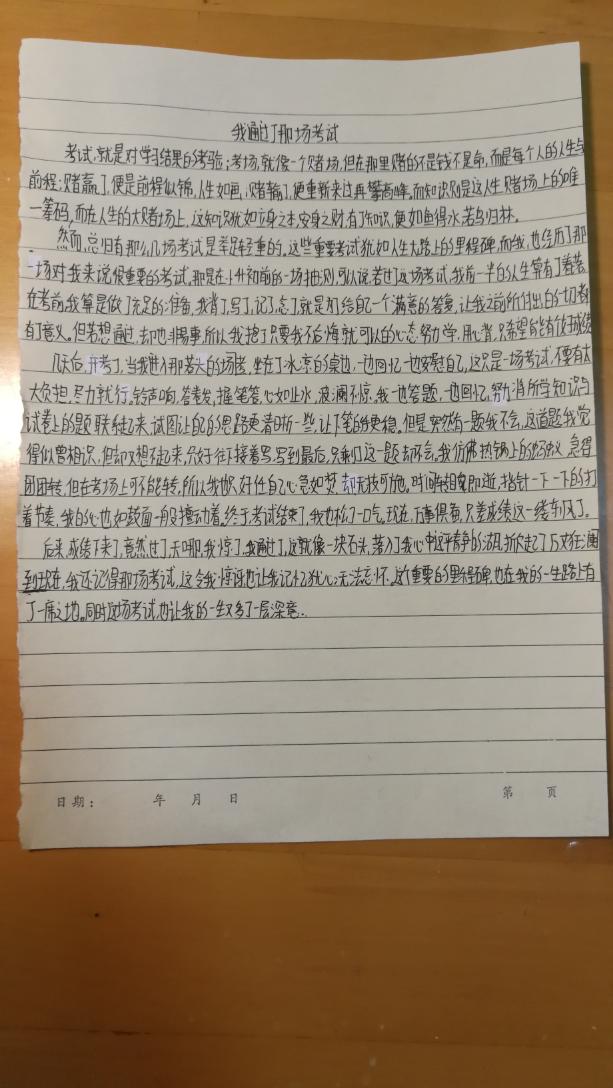 我通过了那场考试
考试,就是对学习结果的考验;考场,就像一个赌场,但在那里赌的不是钱不是命,而是每个人的人生与
前程;赌赢了,便是前程似锦,人生如画,赌输了,便重新来过再攀高峰,而知识则是这人生赌场上的唯
一筹码,而在人生的大赌场上,这知识犹如立身之本,安身之财,有了知识,便如鱼得水,若鸟归林。
然而,总归有那么几场考试是举足轻重的,这些重要考试犹如人生大路上的里程碑,而我,也经历了那
一场对我来说很重要的考试,那是在小升初前的一场抽测,可以说,若过了这场考试,我前一半的人生算有了着落
在考前,我算是做了充足的准备,我背了,写了,记了,忘了,就是为了给自己一个满意的答复,让我之前所付出的一切都
有了意义。但若想通过,却也非易事,所以我抱了只要我不后悔就可以的心态努力学,用心背,只希望能有佳成绩
几天后,开考了,当我进入那若大的考场,坐在了冰凉的桌边,一边回忆一边安慰自己,这只是一场考试,不要有太
大负担,尽力就行。铃声响,答卷发,握笔答,心如止水,波澜不惊,我一边答题,一边回忆,努力将所学知识与
试卷上的题联系起来,试图让自己的思路更清晰一些,让下笔的手更稳。但是,突然有一题我不会,这道题我觉
得似曾相识,但却又想不起来,只好往下接着写,写到最后,只剩们这一题却不会,我仿佛热锅上的蚂蚁急得
团团转,但在考场上可不能转,所以我也只好任自己心急如焚,却无技可施。时间转瞬即逝,指针一下一下的打
着节奏,我的心也如鼓面一般擂动着,终于,考试结束了,我也松了一口气,现在,万事俱备,只差成绩这一缕东风了。
后来,成绩下来了,竟然过了,天哪,我惊了,我通过了,这就像一块石头,落入了我心中这平静的湖,掀起了万丈狂澜
到现在,我还记得那场考试,这令我惊讶也让我记忆犹心,无法忘怀。这个重要的里程碑,也在我的一生路上有
了一席之地。同时这场考试,也让我的一生又多了一层深意.
日期: 年 月 日 第 页